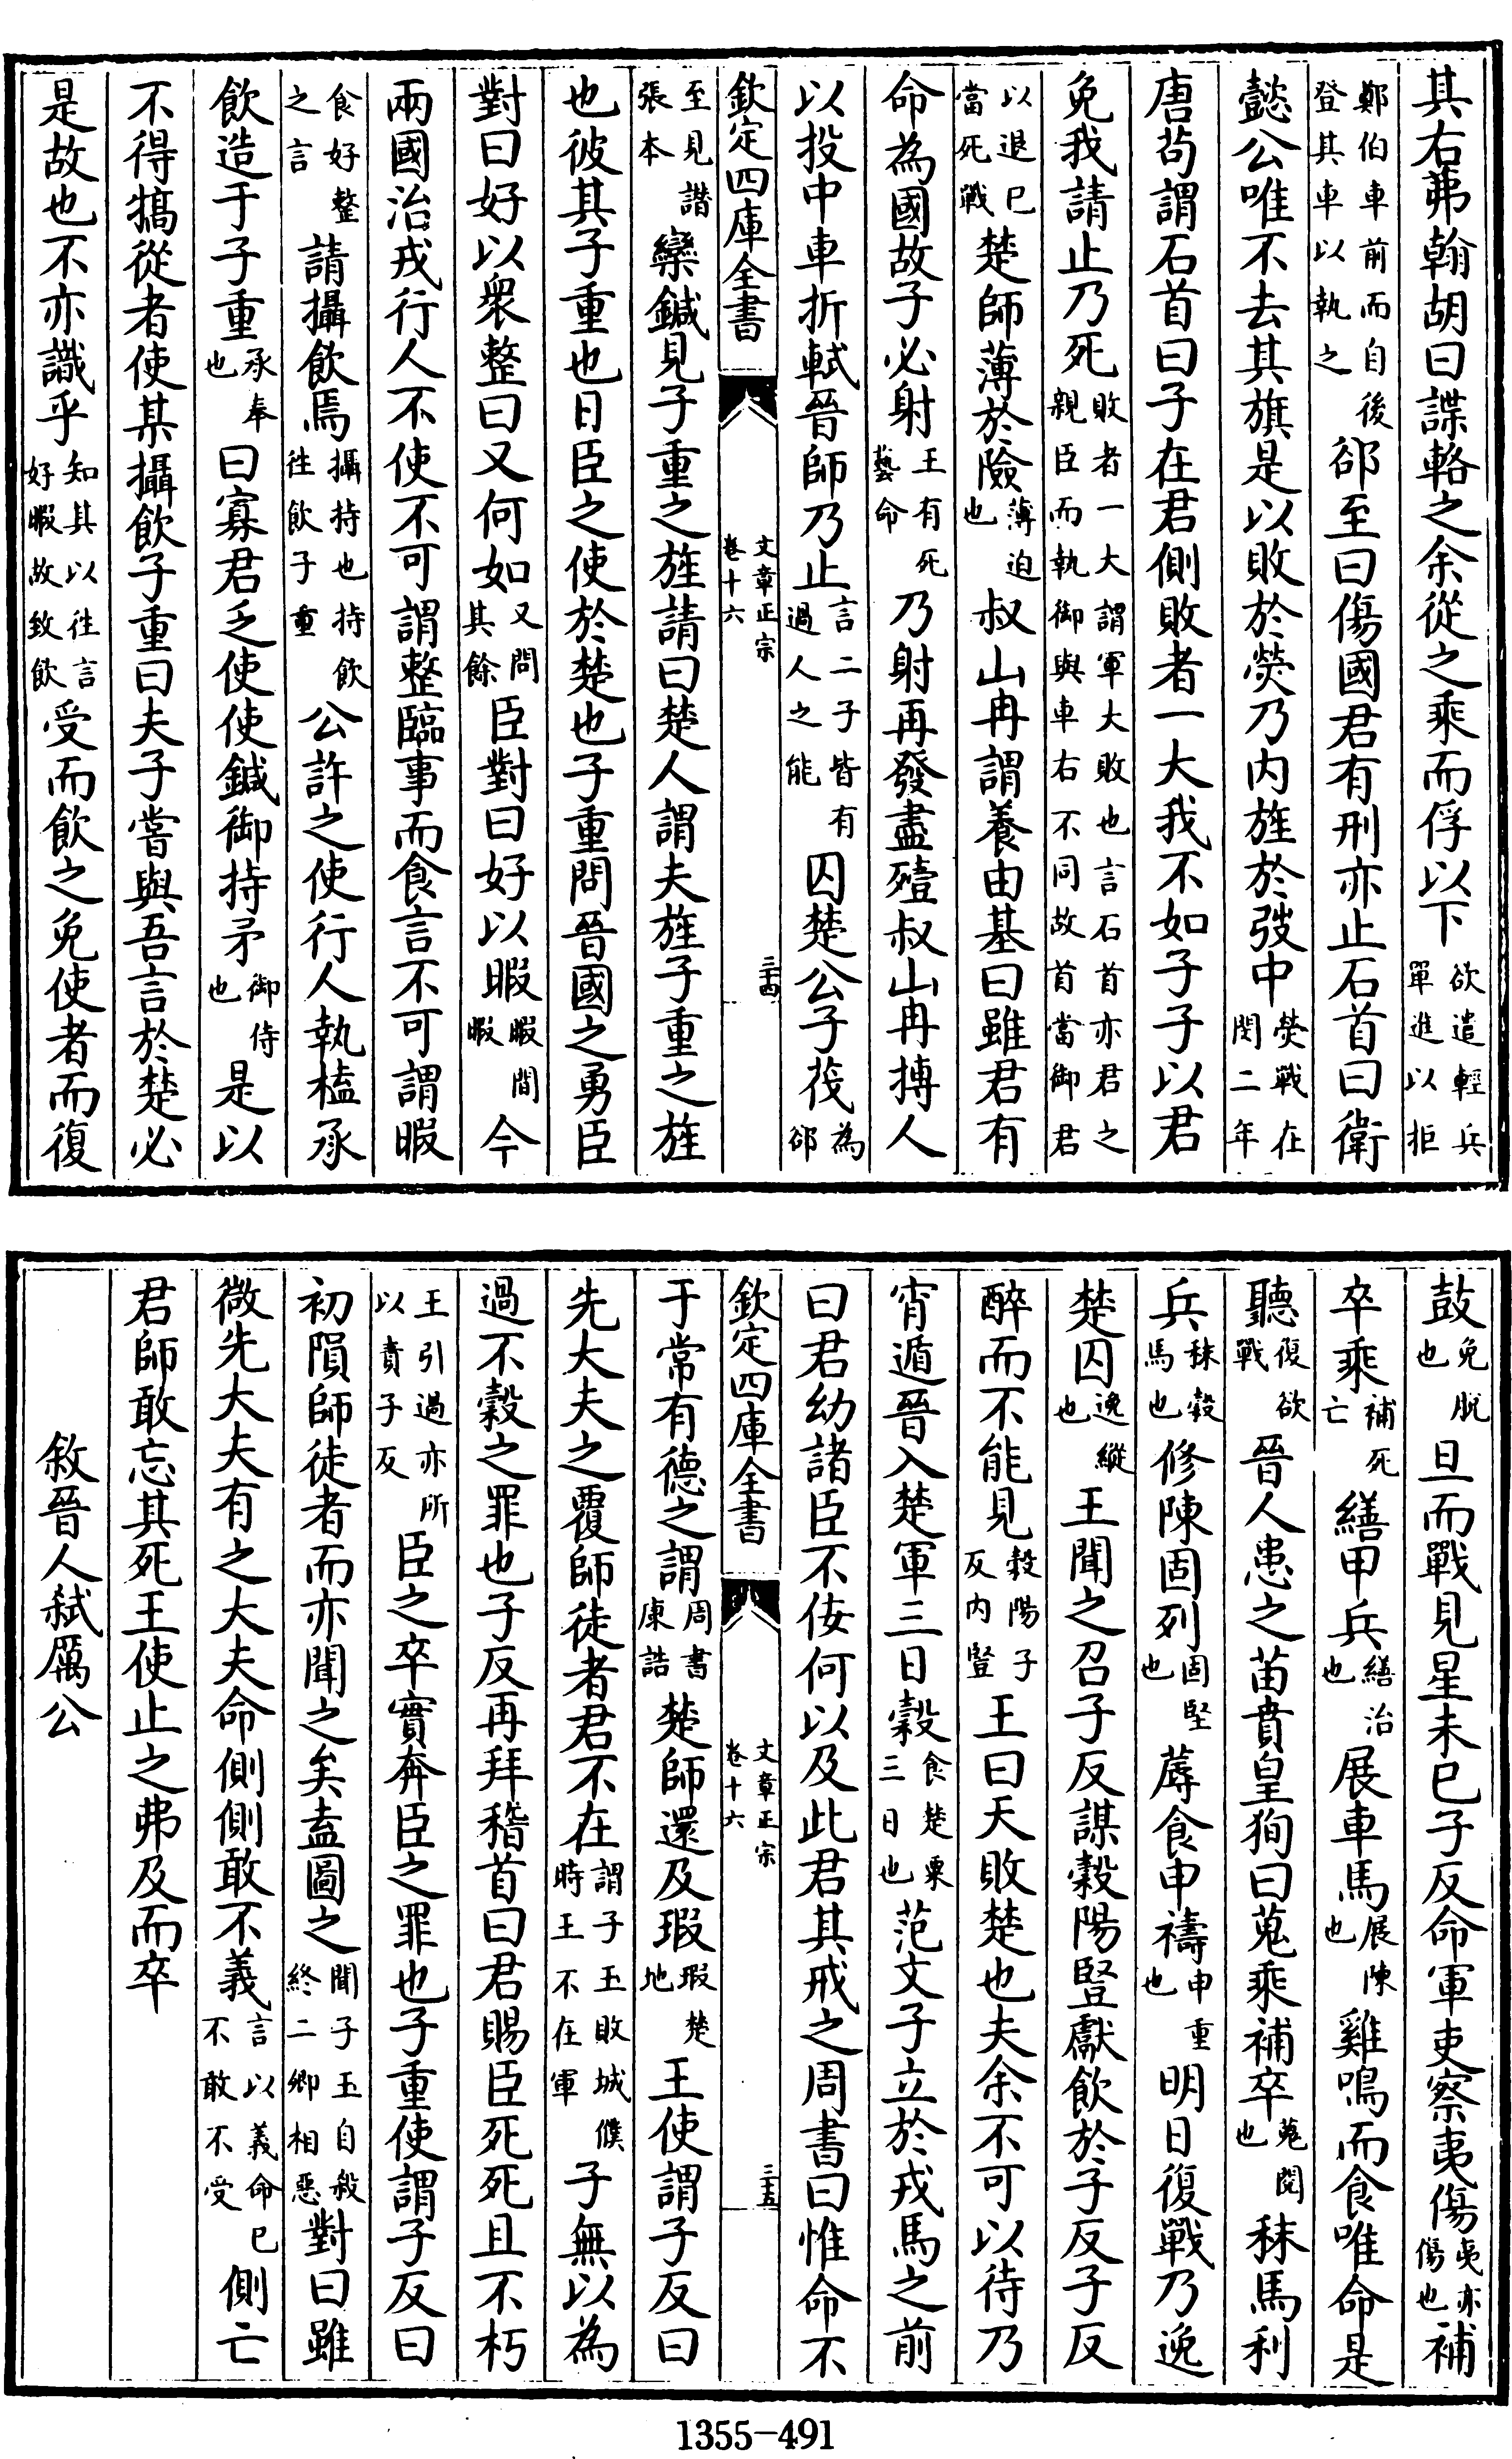 其右茀翰胡曰諜輅之余從之乘而俘以下欲遣輕兵單進以拒
鄭伯車前而自後登其車以執之郤至曰傷國君有刑亦止石首曰衛
懿公唯不去其旗是以敗於熒乃内旌於弢中熒戰在閔二年
唐茍謂石首曰子在君側敗者一大我不如子子以君
免我請止乃死敗者一大謂軍大敗也言石首亦君之親臣而執御與車右不同故首當御君
以退已當死戰楚師薄於險薄迫也叔山冉謂養由基曰雖君有
命為國故子必射王有死藝命乃射再發盡殪叔山冉搏人
以投中車折軾晉師乃止言二子皆有過人之能囚楚公子茷為郤
欽定四庫全書 文章正宗 卷十六 三十四
至見譖張本欒鍼見子重之旌請曰楚人謂夫旌子重之旌
也彼其子重也日臣之使於楚也子重問晉國之勇臣
對曰好以衆整曰又何如又問其餘臣對曰好以暇暇閒暇今
兩國治戎行人不使不可謂整臨事而食言不可謂暇
食好整之言請攝飲焉攝持也持飲往飲子重公許之使行人執榼承
飲造于子重承奉也曰寡君乏使使鍼御持矛御侍也是以
不得犒從者使某攝飲子重曰夫子嘗與吾言於楚必
是故也不亦識乎知其以往言好暇故致飲受而飲之免使者而復
鼓免脫也旦而戰見星未已子反命軍吏察夷傷夷亦傷也補
卒乘補死亡繕甲兵繕治也展車馬展陳也雞鳴而食唯命是
聽復欲戰晉人患之苗賁皇狥曰蒐乘補卒蒐閱也秣馬利
兵秣穀馬也修陳固列固堅也蓐食申禱申重也明日復戰乃逸
楚囚逸縱也王聞之召子反謀穀陽豎獻飲於子反子反
醉而不能見穀陽子反内豎王曰天敗楚也夫余不可以待乃
宵遁晉入楚軍三日穀食楚粟三日也范文子立於戎馬之前
曰君幼諸臣不佞何以及此君其戒之周書曰惟命不
欽定四庫全書 文章正宗 卷十六 三十五
于常有德之謂周書康誥楚師還及瑕瑕楚地王使謂子反曰
先大夫之覆師徒者君不在謂子玉敗城僕時王不在軍子無以為
過不穀之罪也子反再拜稽首曰君賜臣死死且不朽
王引過亦所以責子反臣之卒實奔臣之罪也子重使謂子反曰
初隕師徒者而亦聞之矣盍圖之聞子玉自殺終二卿相惡對曰雖
微先大夫有之大夫命側側敢不義言以義命已不敢不受側亡
君師敢忘其死王使止之弗及而卒
敘晉人弒厲公
1355-491